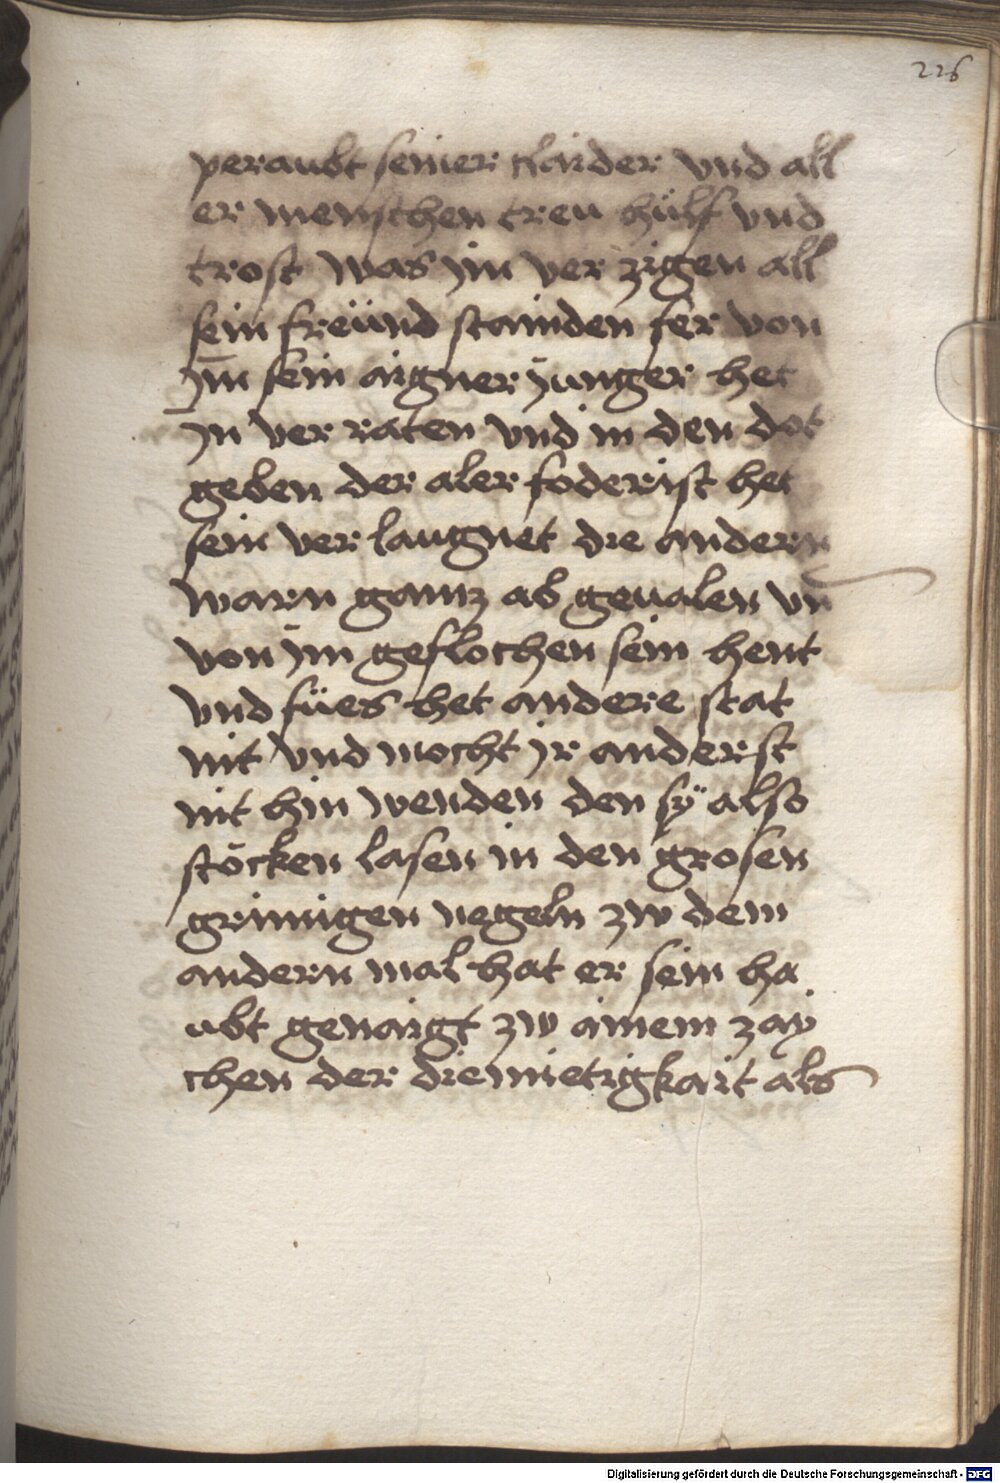 226
peraubt seiner claider vnd all
er menschen treu hülf vnd
trost was jm ver zigen all
sein freünd stainden fer von
jm sein aigner junger het
jn ver raten vnd in den dot
geben der aler foderist het
sein ver laugnet die andern
warn gantz ab geualen vn
von jm geflochen sein hent
vnd fües het andere stat
nit vnd mocht jr anderst
nit hin wenden den sÿ also
stöcken lasen in den grosen
grimigen negeln zw dem
andern mal hat er sein ha
ubt genaigt zw ainem zay
chen der diemietigkait als
Digitalisierung gefördert durch die Deutsche Forschungsgemeinschaft - DFG